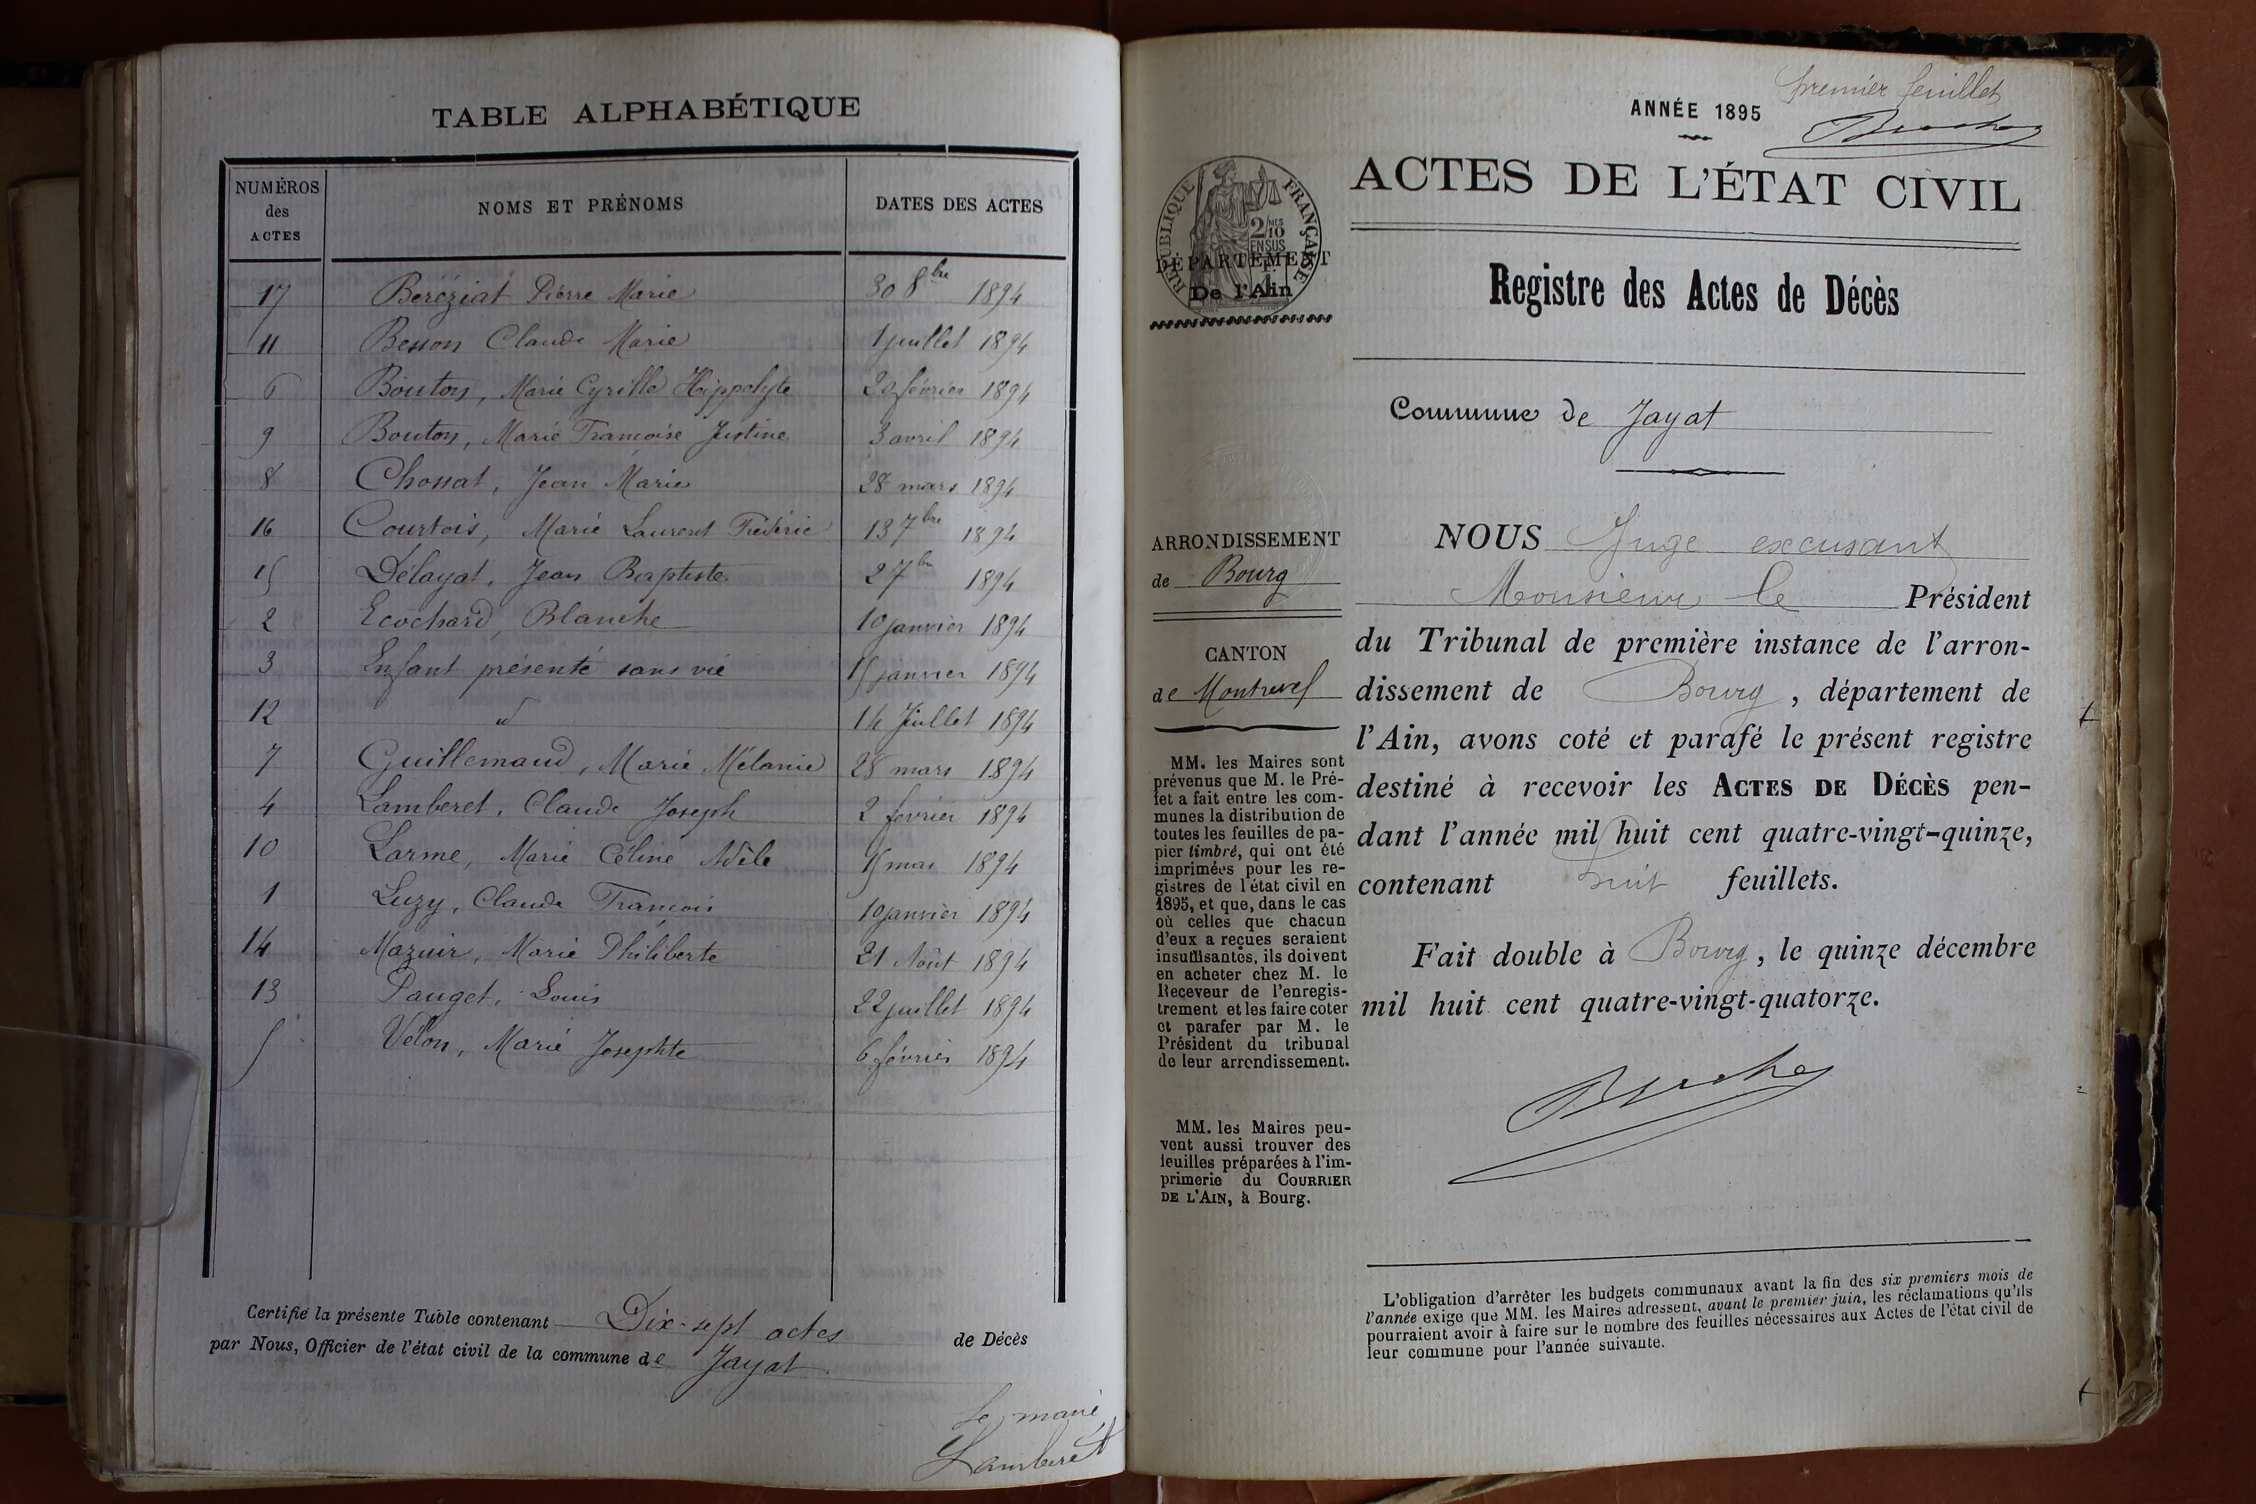 TABLE ALPHABÉTIQUE
NUMÉROS des ACTES NOMS ET PRÉNOMS DATES DES ACTES
17 Beréziat Pierre Marie 30 8bre 1894
11 Besson Claude Marie 1 juillet 1894
6 Bouton, Marie Cyrille Hippolyte 20 février 1894
9 Bouton, Marie Françoise Justine 3 avril 1894
8 Chossat, Jean Marie 28 mars 1894
16 Courtois, Marie Laurent Frédéric 13 7bre 1894
15 Délayat, Jean Baptiste 2 7bre 1894
2 Ecochard, Blanche 10 janvier 1894
3 Enfant présenté sans vie 15 janvier 1894
12 d 14 Juillet 1894
7 Guillemaud, Marie Mélanie 28 mars 1894
4 Lamberet, Claude Joseph 2 février 1894
10 Larme, Marie Céline Adèle 15 mai 1894
1 Luzy, Claude François 10 janvier 1894
14 Mazuir, Marie Philiberte 21 Août 1894
13 Pauget, Louis 22 juillet 1894
5 Velon, Marie Josephte 6 février 1894
Certifié la présente Table contenant Dix-sept actes de Décès
par Nous, Officier de l'état civil de la commune de Jayat.
Le maire
Lamberet
premier feuillet
ANNÉE 1895
ACTES DE L'ÉTAT CIVIL
RÉPUBLIQUE FRANÇAISE
2/10 NES
EN SUS
DÉPARTEMENT
De l'Ain
Registre des Actes de Décès
Commune de Jayat
ARRONDISSEMENT
de Bourg
CANTON
de Montrevel
MM. les Maires sont
prévenus que M. le Pré-
fet a fait entre les com-
munes la distribution de
toutes les feuilles de pa-
pier timbré, qui ont été
imprimées pour les re-
gistres de l'état civil en
1895, et que, dans le cas
où celles que chacun
d'eux a reçues seraient
insuffisantes, ils doivent
en acheter chez M. le
Receveur de l'enregis-
trement et les faire coter
et parafer par M. le
Président du tribunal
de leur arrondissement.
MM. les Maires peu-
vent aussi trouver des
feuilles préparées à l'im-
primerie du COURRIER
DE L'AIN, à Bourg.
NOUS Juge excusant
Monsieur le Président
du Tribunal de première instance de l'arron-
dissement de Bourg, département de
l'Ain, avons coté et parafé le présent registre
destiné à recevoir les ACTES DE DÉCÈS pen-
dant l'année mil huit cent quatre-vingt-quinze,
contenant huit feuillets.
Fait double à Bourg, le quinze décembre
mil huit cent quatre-vingt-quatorze.
L'obligation d'arrêter les budgets communaux avant la fin des six premiers mois de
l'année exige que MM. les Maires adressent, avant le premier juin, les réclamations qu'ils
pourraient avoir à faire sur le nombre des feuilles nécessaires aux Actes de l'état civil de
leur commune pour l'année suivante.